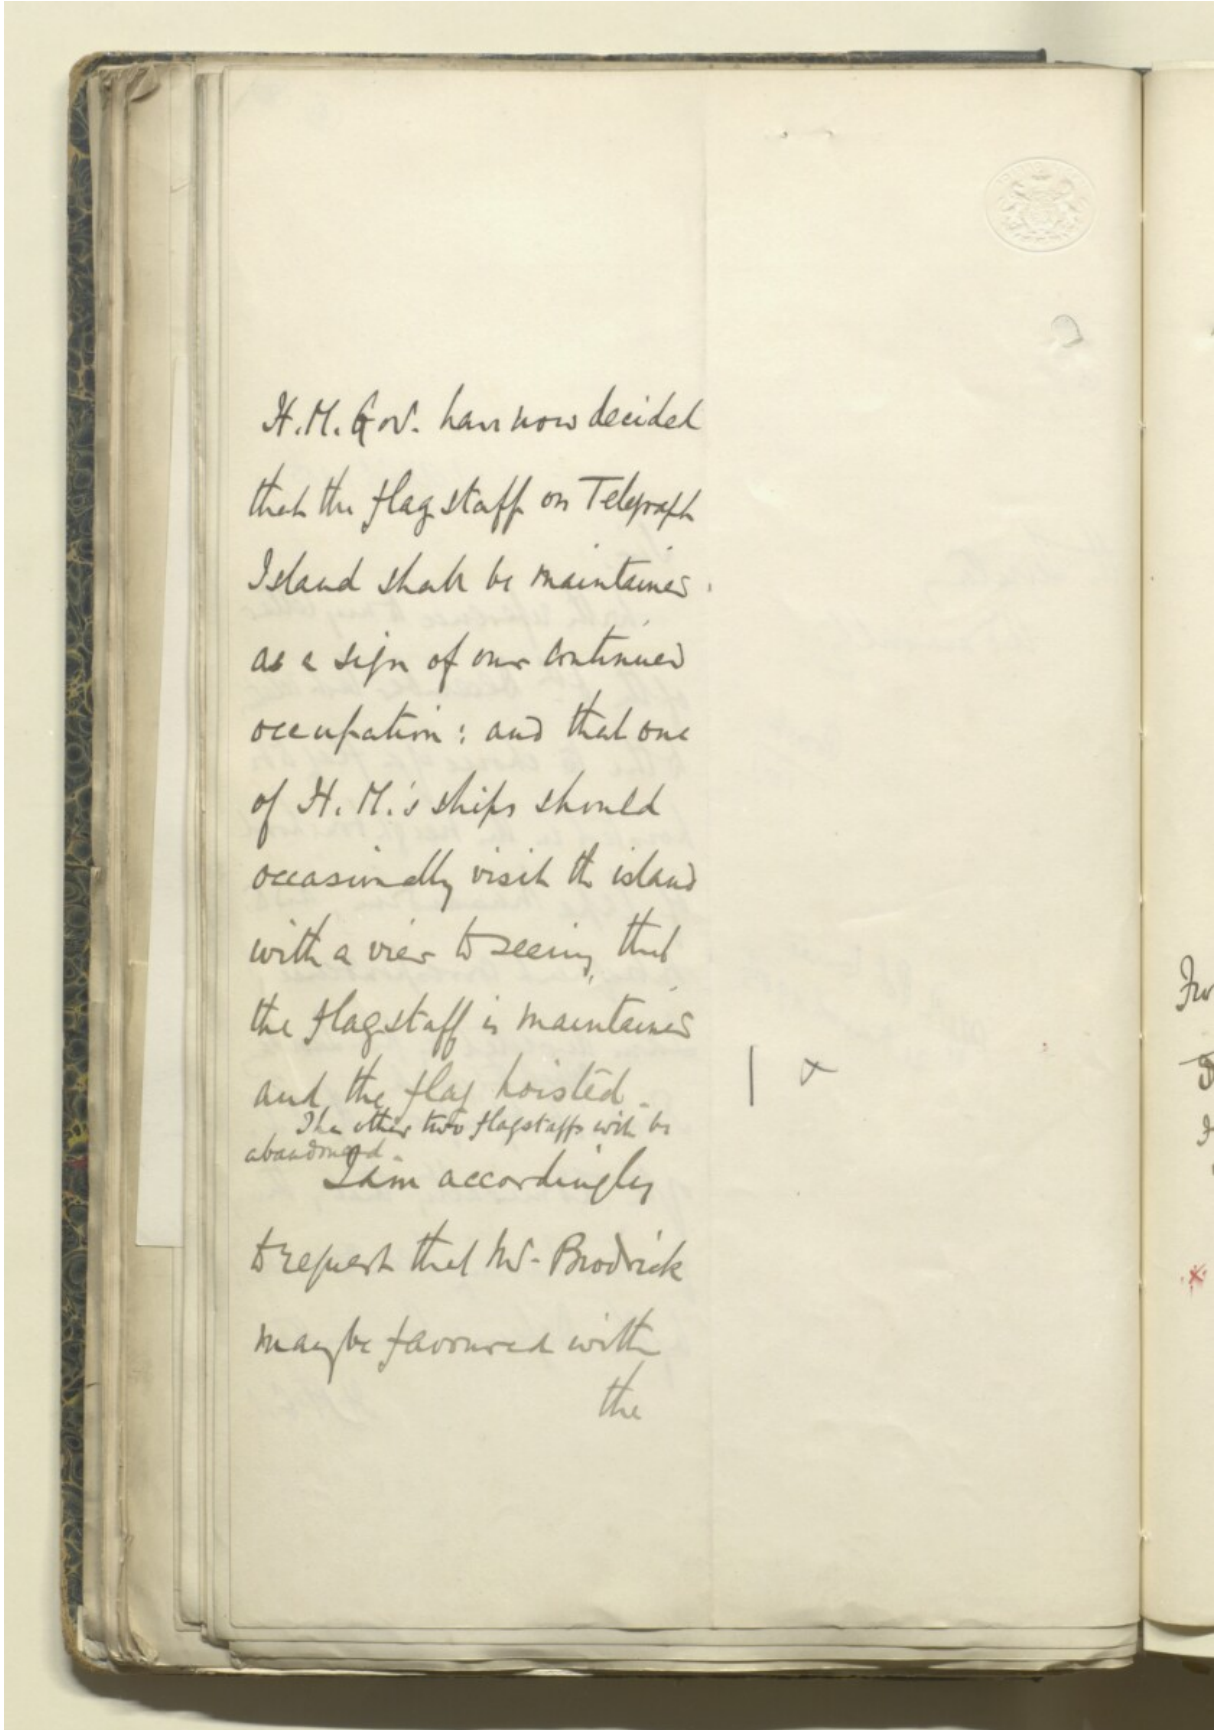 H.M. Gov. have now decided
that the flagstaff on Telegraph
Island shall be maintained
as a sign of our continued
occupation: and that one
of H.M.'s ships should
occasionally visit the island
with a view to seeing that
the flagstaff is maintained
and the flag hoisted.
The other two flagstaffs will be
abandoned.
I am accordingly
to request that Mr. Brodrick
may be favoured with
the
x